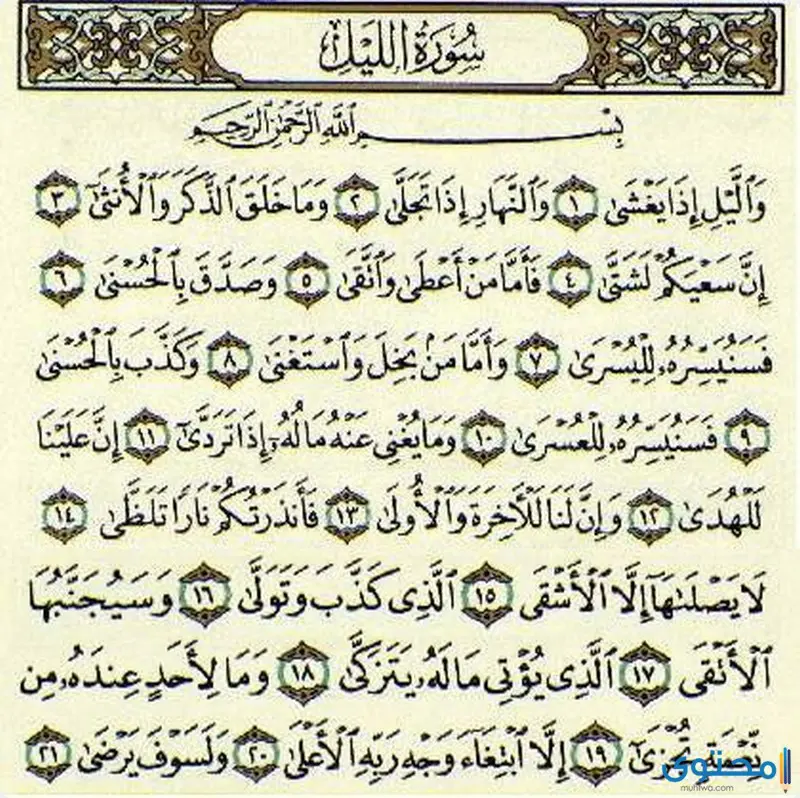 سُورَةُ اللَّيْلِ
بِسْمِ ٱللَّهِ ٱلرَّحْمَٰنِ ٱلرَّحِيمِ
وَٱلَّيْلِ إِذَا يَغْشَىٰ ١ وَٱلنَّهَارِ إِذَا تَجَلَّىٰ ٢ وَمَا خَلَقَ ٱلذَّكَرَ وَٱلْأُنثَىٰٓ ٣
إِنَّ سَعْيَكُمْ لَشَتَّىٰ ٤ فَأَمَّا مَنْ أَعْطَىٰ وَٱتَّقَىٰ ٥ وَصَدَّقَ بِٱلْحُسْنَىٰ ٦
فَسَنُيَسِّرُهُۥ لِلْيُسْرَىٰ ٧ وَأَمَّا مَنۢ بَخِلَ وَٱسْتَغْنَىٰ ٨ وَكَذَّبَ بِٱلْحُسْنَىٰ
٩ فَسَنُيَسِّرُهُۥ لِلْعُسْرَىٰ ١٠ وَمَا يُغْنِى عَنْهُ مَالُهُۥٓ إِذَا تَرَدَّىٰٓ ١١ إِنَّ عَلَيْنَا
لَلْهُدَىٰ ١٢ وَإِنَّ لَنَا لَلْءَاخِرَةَ وَٱلْأُولَىٰ ١٣ فَأَنذَرْتُكُمْ نَارًا تَلَظَّىٰ ١٤
لَا يَصْلَىٰهَآ إِلَّا ٱلْأَشْقَى ١٥ ٱلَّذِى كَذَّبَ وَتَوَلَّىٰ ١٦ وَسَيُجَنَّبُهَا
ٱلْأَتْقَى ١٧ ٱلَّذِى يُؤْتِى مَالَهُۥ يَتَزَكَّىٰ ١٨ وَمَا لِأَحَدٍ عِندَهُۥ مِن
نِّعْمَةٍ تُجْزَىٰٓ ١٩ إِلَّا ٱبْتِغَآءَ وَجْهِ رَبِّهِ ٱلْأَعْلَىٰ ٢٠ وَلَسَوْفَ يَرْضَىٰ ٢١
محتوى
muhtwa.com